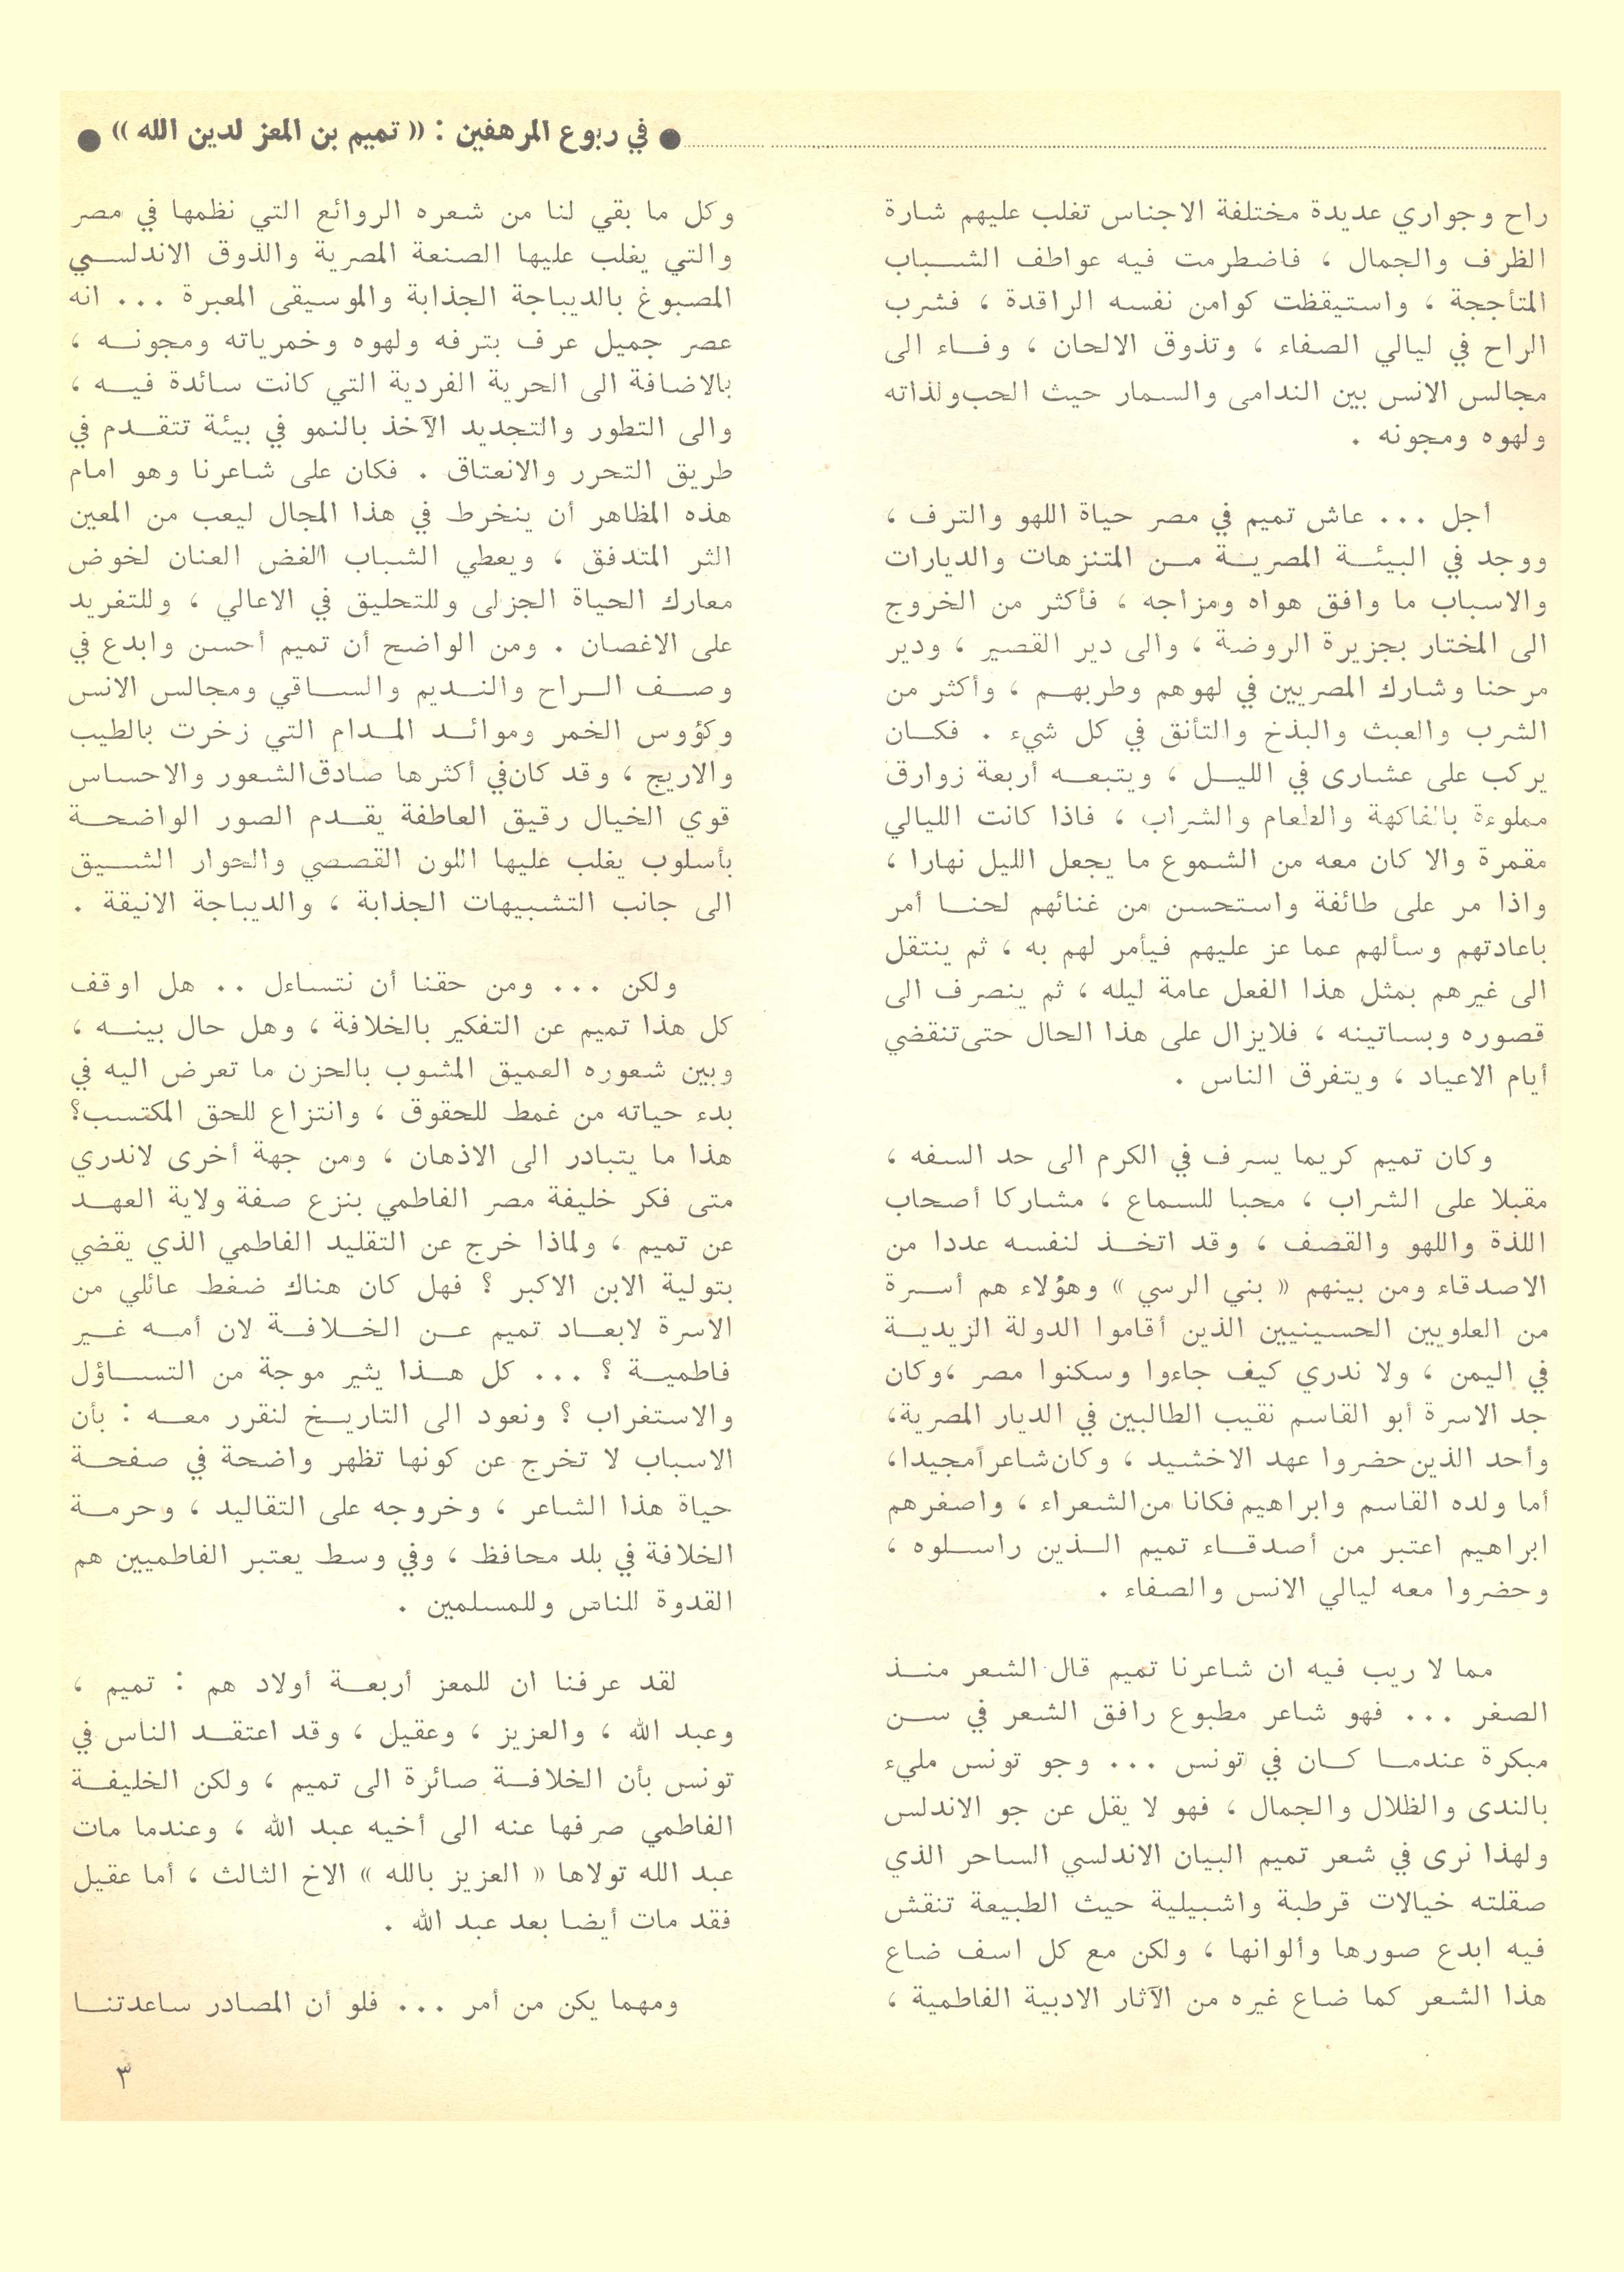 ● في ربوع المرهفين : « تميم بن المعز لدين الله » ●
راح وجواري عديدة مختلفة الاجناس تغلب عليهم شارة
الظرف والجمال ، فاضطرمت فيه عواطف الشباب
المتأججة ، واستيقظت كوامن نفسه الراقدة ، فشرب
الراح في ليالي الصفاء ، وتذوق الالحان ، وفاء الى
مجالس الانس بين الندامى والسمار حيث الحب ولذاته
ولهوه ومجونه .
أجل ... عاش تميم في مصر حياة اللهو والترف ،
ووجد في البيئة المصرية من المتنزهات والديارات
والاسباب ما وافق هواه ومزاجه ، فأكثر من الخروج
الى المختار بجزيرة الروضة ، والى دير القصير ، ودير
مرحنا وشارك المصريين في لهوهم وطربهم ، وأكثر من
الشرب والعبث والبذخ والتأنق في كل شيء . فكان
يركب على عشارى في الليل ، ويتبعه أربعة زوارق
مملوءة بالفاكهة والطعام والشراب ، فاذا كانت الليالي
مقمرة والا كان معه من الشموع ما يجعل الليل نهارا ،
واذا مر على طائفة واستحسن من غنائهم لحنا أمر
باعادتهم وسألهم عما عز عليهم فيأمر لهم به ، ثم ينتقل
الى غيرهم بمثل هذا الفعل عامة ليله ، ثم ينصرف الى
قصوره وبساتينه ، فلايزال على هذا الحال حتى تنقضي
أيام الاعياد ، ويتفرق الناس .
وكان تميم كريما يسرف في الكرم الى حد السفه ،
مقبلا على الشراب ، محبا للسماع ، مشاركا أصحاب
اللذة واللهو والقصف ، وقد اتخذ لنفسه عددا من
الاصدقاء ومن بينهم « بني الرسي » وهؤلاء هم أسرة
من العلويين الحسينيين الذين أقاموا الدولة الزيدية
في اليمن ، ولا ندري كيف جاءوا وسكنوا مصر ،وكان
جد الاسرة أبو القاسم نقيب الطالبين في الديار المصرية،
وأحد الذين حضروا عهد الاخشيد ، وكان شاعراً مجيدا،
أما ولده القاسم وابراهيم فكانا من الشعراء ، واصغرهم
ابراهيم اعتبر من أصدقاء تميم الذين راسلوه ،
وحضروا معه ليالي الانس والصفاء .
مما لا ريب فيه ان شاعرنا تميم قال الشعر منذ
الصغر ... فهو شاعر مطبوع رافق الشعر في سن
مبكرة عندما كان في تونس ... وجو تونس مليء
بالندى والظلال والجمال ، فهو لا يقل عن جو الاندلس
ولهذا نرى في شعر تميم البيان الاندلسي الساحر الذي
صقلته خيالات قرطبة واشبيلية حيث الطبيعة تنقش
فيه ابدع صورها وألوانها ، ولكن مع كل اسف ضاع
هذا الشعر كما ضاع غيره من الآثار الادبية الفاطمية ،
وكل ما بقي لنا من شعره الروائع التي نظمها في مصر
والتي يغلب عليها الصنعة المصرية والذوق الاندلسي
المصبوغ بالديباجة الجذابة والموسيقى المعبرة ... انه
عصر جميل عرف بترفه ولهوه وخمرياته ومجونه ،
بالاضافة الى الحرية الفردية التي كانت سائدة فيه ،
والى التطور والتجديد الآخذ بالنمو في بيئة تتقدم في
طريق التحرر والانعتاق . فكان على شاعرنا وهو امام
هذه المظاهر أن ينخرط في هذا المجال ليعب من المعين
الثر المتدفق ، ويعطي الشباب الغض العنان لخوض
معارك الحياة الجزلى وللتحليق في الاعالي ، وللتغريد
على الاغصان . ومن الواضح أن تميم أحسن وابدع في
وصف الراح والنديم والساقي ومجالس الانس
وكؤوس الخمر وموائد المدام التي زخرت بالطيب
والاريج ، وقد كان في أكثرها صادق الشعور والاحساس
قوي الخيال رقيق العاطفة يقدم الصور الواضحة
بأسلوب يغلب عليها اللون القصصي والحوار الشيق
الى جانب التشبيهات الجذابة ، والديباجة الانيقة .
ولكن ... ومن حقنا أن نتساءل .. هل اوقف
كل هذا تميم عن التفكير بالخلافة ، وهل حال بينه ،
وبين شعوره العميق المشوب بالحزن ما تعرض اليه في
بدء حياته من غمط للحقوق ، وانتزاع للحق المكتسب؟
هذا ما يتبادر الى الاذهان ، ومن جهة أخرى لاندري
متى فكر خليفة مصر الفاطمي بنزع صفة ولاية العهد
عن تميم ، ولماذا خرج عن التقليد الفاطمي الذي يقضي
بتولية الابن الاكبر ؟ فهل كان هناك ضغط عائلي من
الاسرة لابعاد تميم عن الخلافة لان أمه غير
فاطمية ؟ ... كل هذا يثير موجة من التساؤل
والاستغراب ؟ ونعود الى التاريخ لنقرر معه : بأن
الاسباب لا تخرج عن كونها تظهر واضحة في صفحة
حياة هذا الشاعر ، وخروجه على التقاليد ، وحرمة
الخلافة في بلد محافظ ، وفي وسط يعتبر الفاطميين هم
القدوة للناس وللمسلمين .
لقد عرفنا ان للمعز أربعة أولاد هم : تميم ،
وعبد الله ، والعزيز ، وعقيل ، وقد اعتقد الناس في
تونس بأن الخلافة صائرة الى تميم ، ولكن الخليفة
الفاطمي صرفها عنه الى أخيه عبد الله ، وعندما مات
عبد الله تولاها « العزيز بالله » الاخ الثالث ، أما عقيل
فقد مات أيضا بعد عبد الله .
ومهما يكن من أمر ... فلو أن المصادر ساعدتنا
٣